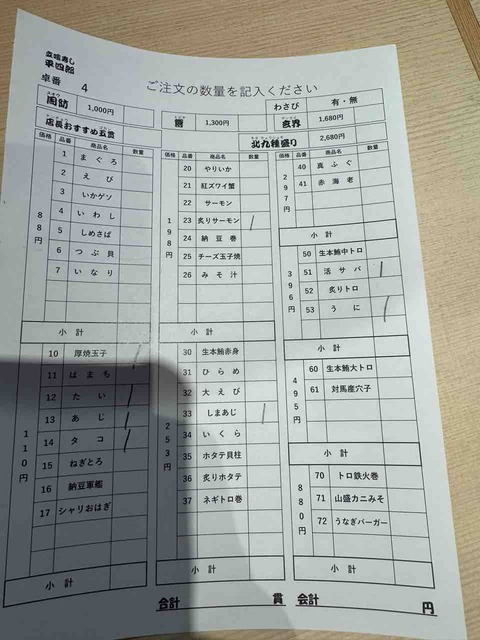 立喰寿し
平四郎
卓番 4
ご注文の数量を記入ください
周防 1,000円
響 1,300円
わさび 有・無
玄界 1,680円
店長おすすめ五貫
北九種盛り 2,680円
価格 品番 商品名 数量
88円
1 まぐろ
2 えび
3 いかゲソ
4 いわし
5 しめさば
6 つぶ貝
7 いなり
小計
110円
10 厚焼玉子 /
11 はまち
12 たい /
13 あじ /
14 タコ /
15 ねぎとろ
16 納豆軍艦
17 シャリおはぎ
小計
価格 品番 商品名 数量
198円
20 やりいか
21 紅ズワイ蟹
22 サーモン
23 炙りサーモン /
24 納豆巻
25 チーズ玉子焼
26 みそ汁
小計
253円
30 生本鮪赤身
31 ひらめ
32 大えび
33 しまあじ /
34 いくら
35 ホタテ貝柱
36 炙りホタテ
37 ネギトロ巻
小計
価格 品番 商品名 数量
297円
40 真ふぐ
41 赤海老
小計
396円
50 生本鮪中トロ
51 活サバ /
52 炙りトロ
53 うに /
小計
495円
60 生本鮪大トロ
61 対馬産穴子
小計
880円
70 トロ鉄火巻
71 山盛カニみそ
72 うなぎバーガー
小計
合計 貫 会計 円